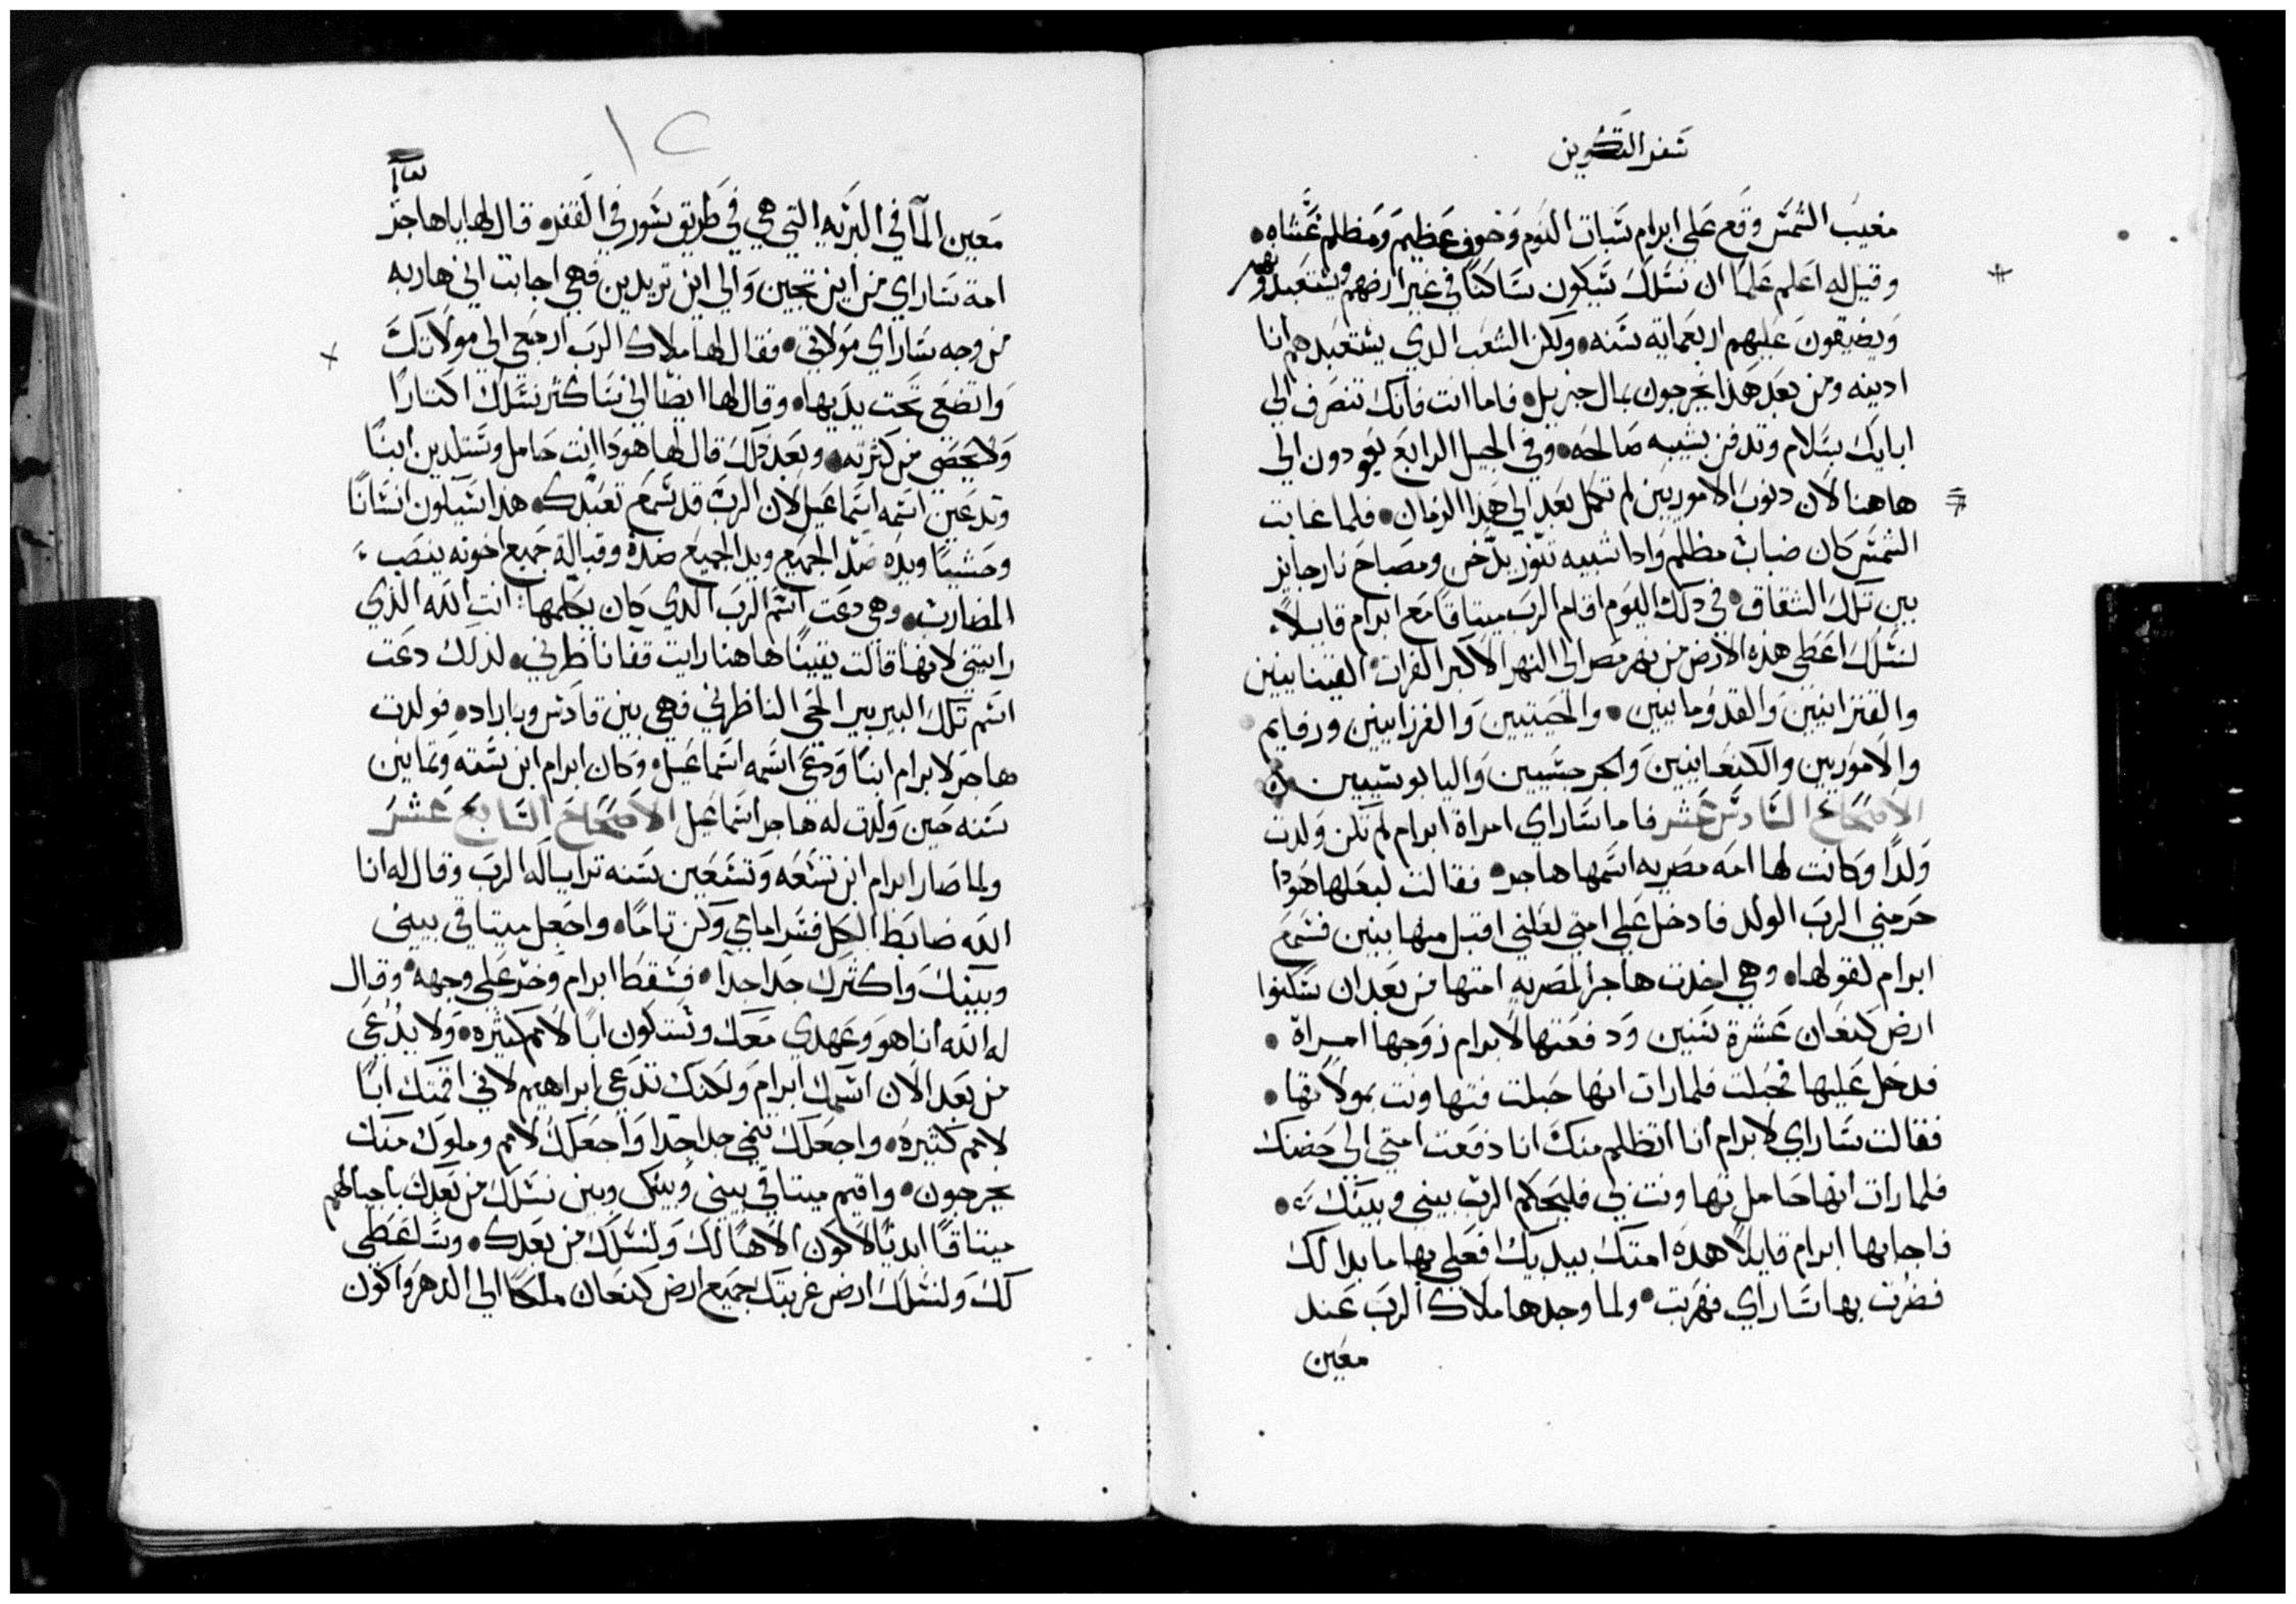 سفر التكوين
مغيب الشمس وقع على ابرام سبات النوم وخوف عظيم ومظلم غشاه
وقيل له اعلم علما ان نسلك سيكون ساكنا في غير ارضهم ويستعبدونهم
ويضيقون عليهم اربعماية سنه ولكن الشعب الدي يستعبدهم انا
ادينه ومن بعد هذا يخرجون بمال جزيل فاما انت فانك تنصرف الي
ابايك بسلام وتدفن بشيبه صالحه وفي الجيل الرابع يعودون الي
هاهنا لان دنوب الاموريين لم تكمل بعد الي هذا الزمان فلما غابت
الشمس كان ضباب مظلم وادا شبيه تنور يدخن ومصباح نار جايز
بين تلك الشقاق في دلك اليوم اقام الرب ميتاقا مع ابرام قايلا
لنسلك اعطي هذه الارض من نهر مصر الي النهر الاكبر الفرات القينايين
والقنزانيين والقدومايين والحيتيين والفرزايين ورفايم
والاموريين والكنعانيين والجرجسيين واليابوسيين
الاصحاح السادس عشر فاما ساراي امراة ابرام لم تكن ولدت
ولدا وكانت لها امه مصريه اسمها هاجر فقالت لبعلها هودا
حرمني الرب الولد فادخل علي امتي لعلني اقتبل منها بنين فسمع
ابرام لقولها وهي اخدت هاجر المصريه امتها من بعد ان سكنوا
ارض كنعان عشرة سنين ودفعتها لابرام زوجها امراة
فدخل عليها فحبلت فلما رات انها حبلت فتهاونت بمولاتها
فقالت ساراي لابرام انا اتظلم منك انا دفعت امتي الي حضنك
فلما رات انها حامل تهاونت بي فليحكم الرب بيني وبينك
فاجابها ابرام قايلا هده امتك بيديك افعلي بها ما بدا لك
فضرت بها ساراي فهربت ولما وجدها ملاك الرب عند
معين
١٢
معين المآ في البريه التي هي في طريق سور في القفر قال لها ياهاجر
امة ساراي من اين تجين والي اين تريدين فهي اجابت اني هاربه
من وجه ساراي مولاتي فقال لها ملاك الرب ارجعي الي مولاتك
واتضعي تحت يديها وقال لها ايضا اني ساكثر نسلك اكتارا
ولا يحصي من كثرته وبعد دلك قال لها هودا انت حامل وستلدين ابنا
وتدعين اسمه اسماعيل لان الرب قد سمع تعبدك هذا سيكون انسانا
وحشيا ويده ضد الجميع ويد الجميع ضده وقبالة جميع اخوته ينصب
المضارب وهي دعت اسم الرب الدي كان يكلمها انت الله الذي
رايتني لانها قالت يقينا هاهنا رايت قفا ناظرني لذلك دعت
اسم تلك البير بير الحي الناظرني فهي بين قادس وباراد فولدت
هاجر لابرام ابنا ودعي اسمه اسماعيل وكان ابرام ابن سته وتمانين
سنه حين ولدت له هاجر اسماعيل الاصحاح السابع عشر
ولما صار ابرام ابن تسعه وتسعين سنه ترايا له الرب وقال له انا
الله ضابط الكل فسر امامي وكن تاما واجعل ميتاقي بيني
وبينك واكثرك جدا جدا فسقط ابرام وخر علي وجهه وقال
له الله انا هو وعهدي معك وستكون ابا لامم كثيره ولا يدعي
من بعد الان اسمك ابرام ولكنك تدعي ابراهيم لاني اقمتك ابا
لامم كثيره واجعلك تنمي جدا جدا واجعلك لامم وملوك منك
يخرجون واقيم ميتاقي بيني وبينك وبين نسلك من بعدك باجيالهم
ميتاقا ابديا لاكون الاها لك ولنسلك من بعدك وساعطي
لك ولنسلك ارض غربتك جميع ارض كنعان ملكا الي الدهر واكون